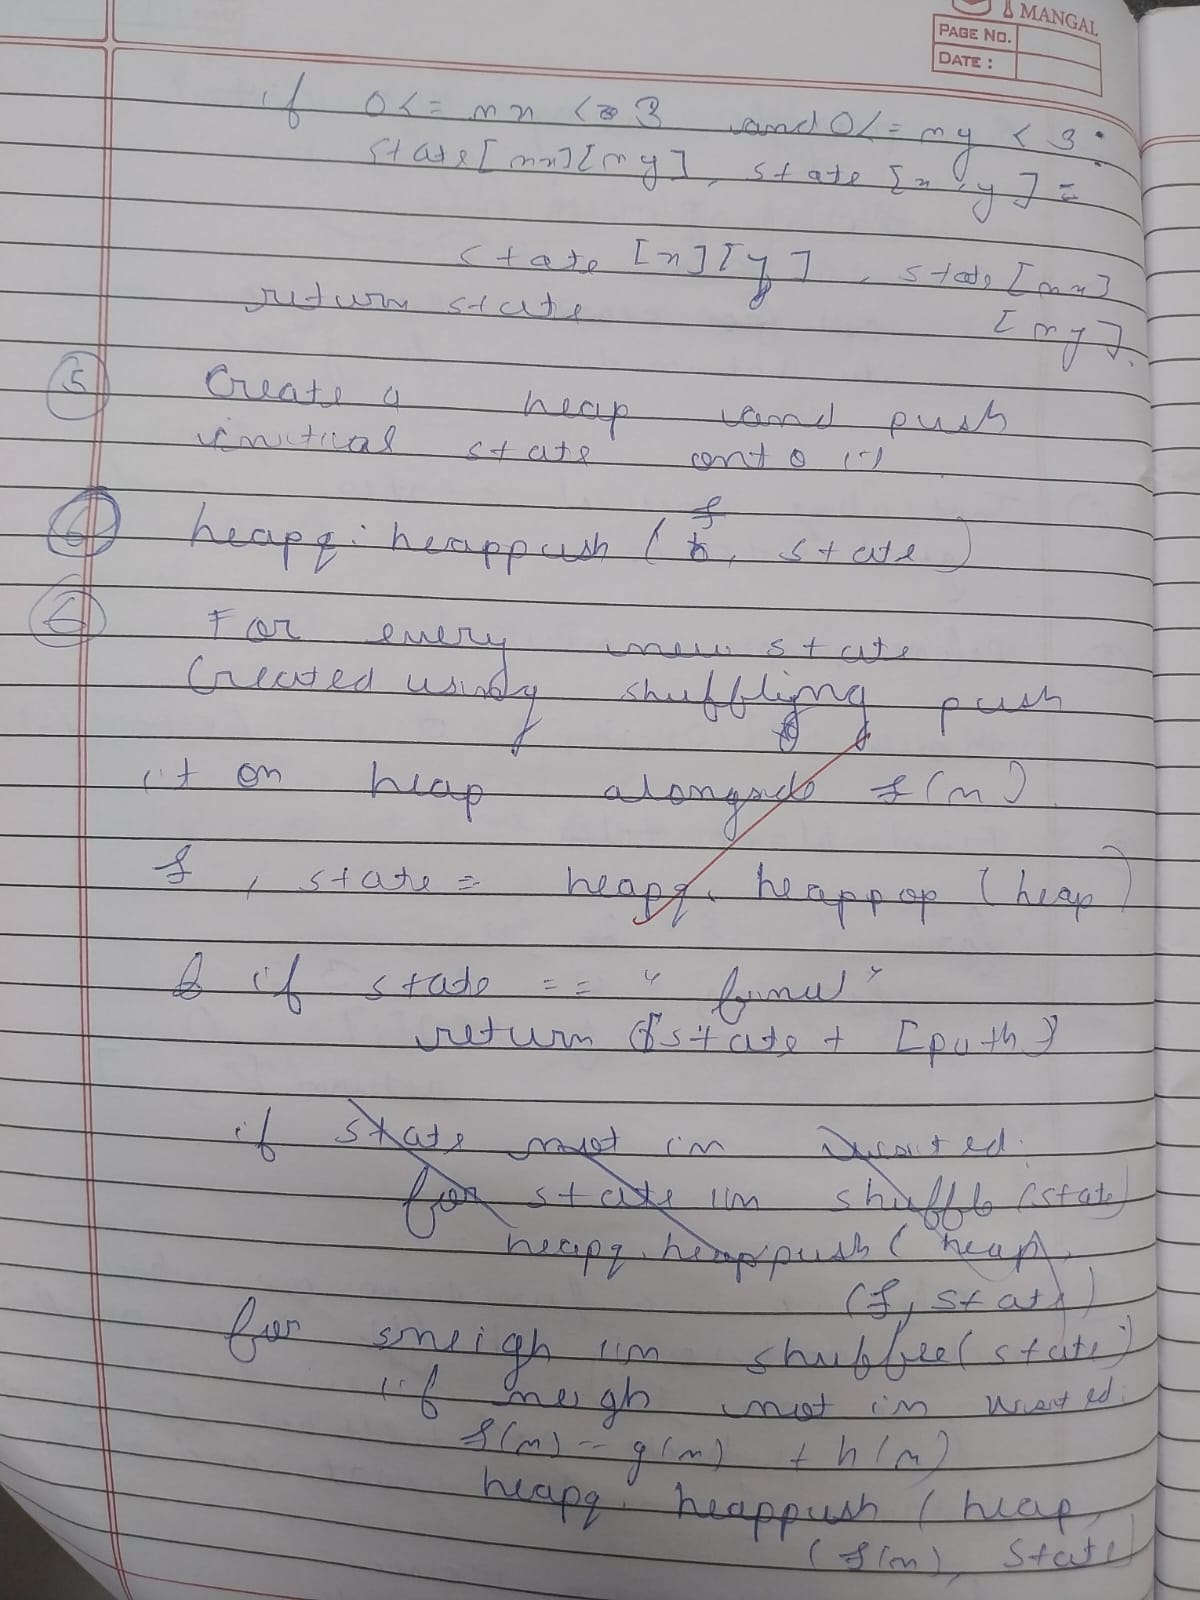 MANGAL
PAGE NO.
DATE :
if 0<= nx < 3 and 0<= ny < 3:
state[nx][ny], state [x,y] =
state [x][y], state [nx]
return state [ny].
5 Create a heap and push
initial state onto it
6 heapq. heappush (f, state)
6 For every new state
Created using shuffling push
it on heap alongside f(n).
f, state = heapq. heappop (heap)
if state == "final"
return state + [path]
if state not in visited.
for state in shuffle (state)
heapq. heappush ( heap,
(f, state)
for neigh in shuffle(state)
if neigh not in visited:
f(n) = g(n) + h(n)
heapq. heappush ( heap,
( f(n), state)